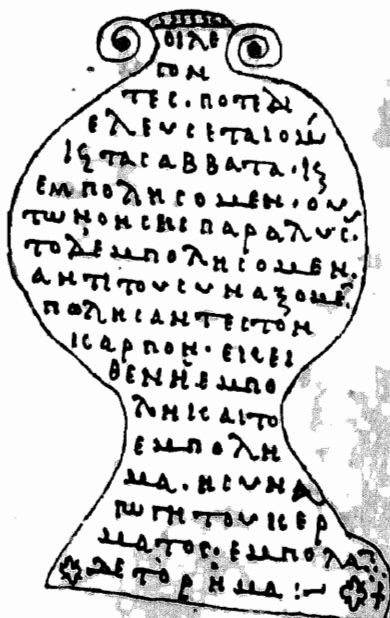 ΟΙ ΛΕ
ΓΟΝ
ΤΕC· ΠΟΤΕ ΔΙ
ΕΛΕΥCΕΤΑΙ Ο Μ
Ϗ ΤΑ CΑΒΒΑΤΑ· Ϗ
ΕΜΠΟΛΗCΟΜΕΝ· ΟΥ
ΤΩ ΝΟΗCΕΙC ΠΑΡΑΛΥC.
ΤΟ ΔΕ ΜΠΟΛΗCΟΜΕΝ.
ΑΝΤΙ ΤΟΥ CΥΝΑΞΟΜΕ
ΠΩΛΗCΑΝΤΕC ΤΟΝ
ΚΑΡΠΟΝ· ΕΚΕΙ
ΘΕΝ Η ΕΜΠΟ
ΛΗ ΚΑΙ ΤΟ
ΕΜΠΟΛΗ
ΜΑ· Η CΥΝΑ
ΓΩΓΗ ΤΟΥ ΚΕΡ
ΜΑΤΟC· ΕΜΠΟΛΑ
ΔΕ ΤΟ ΡΗΜΑ:~ +